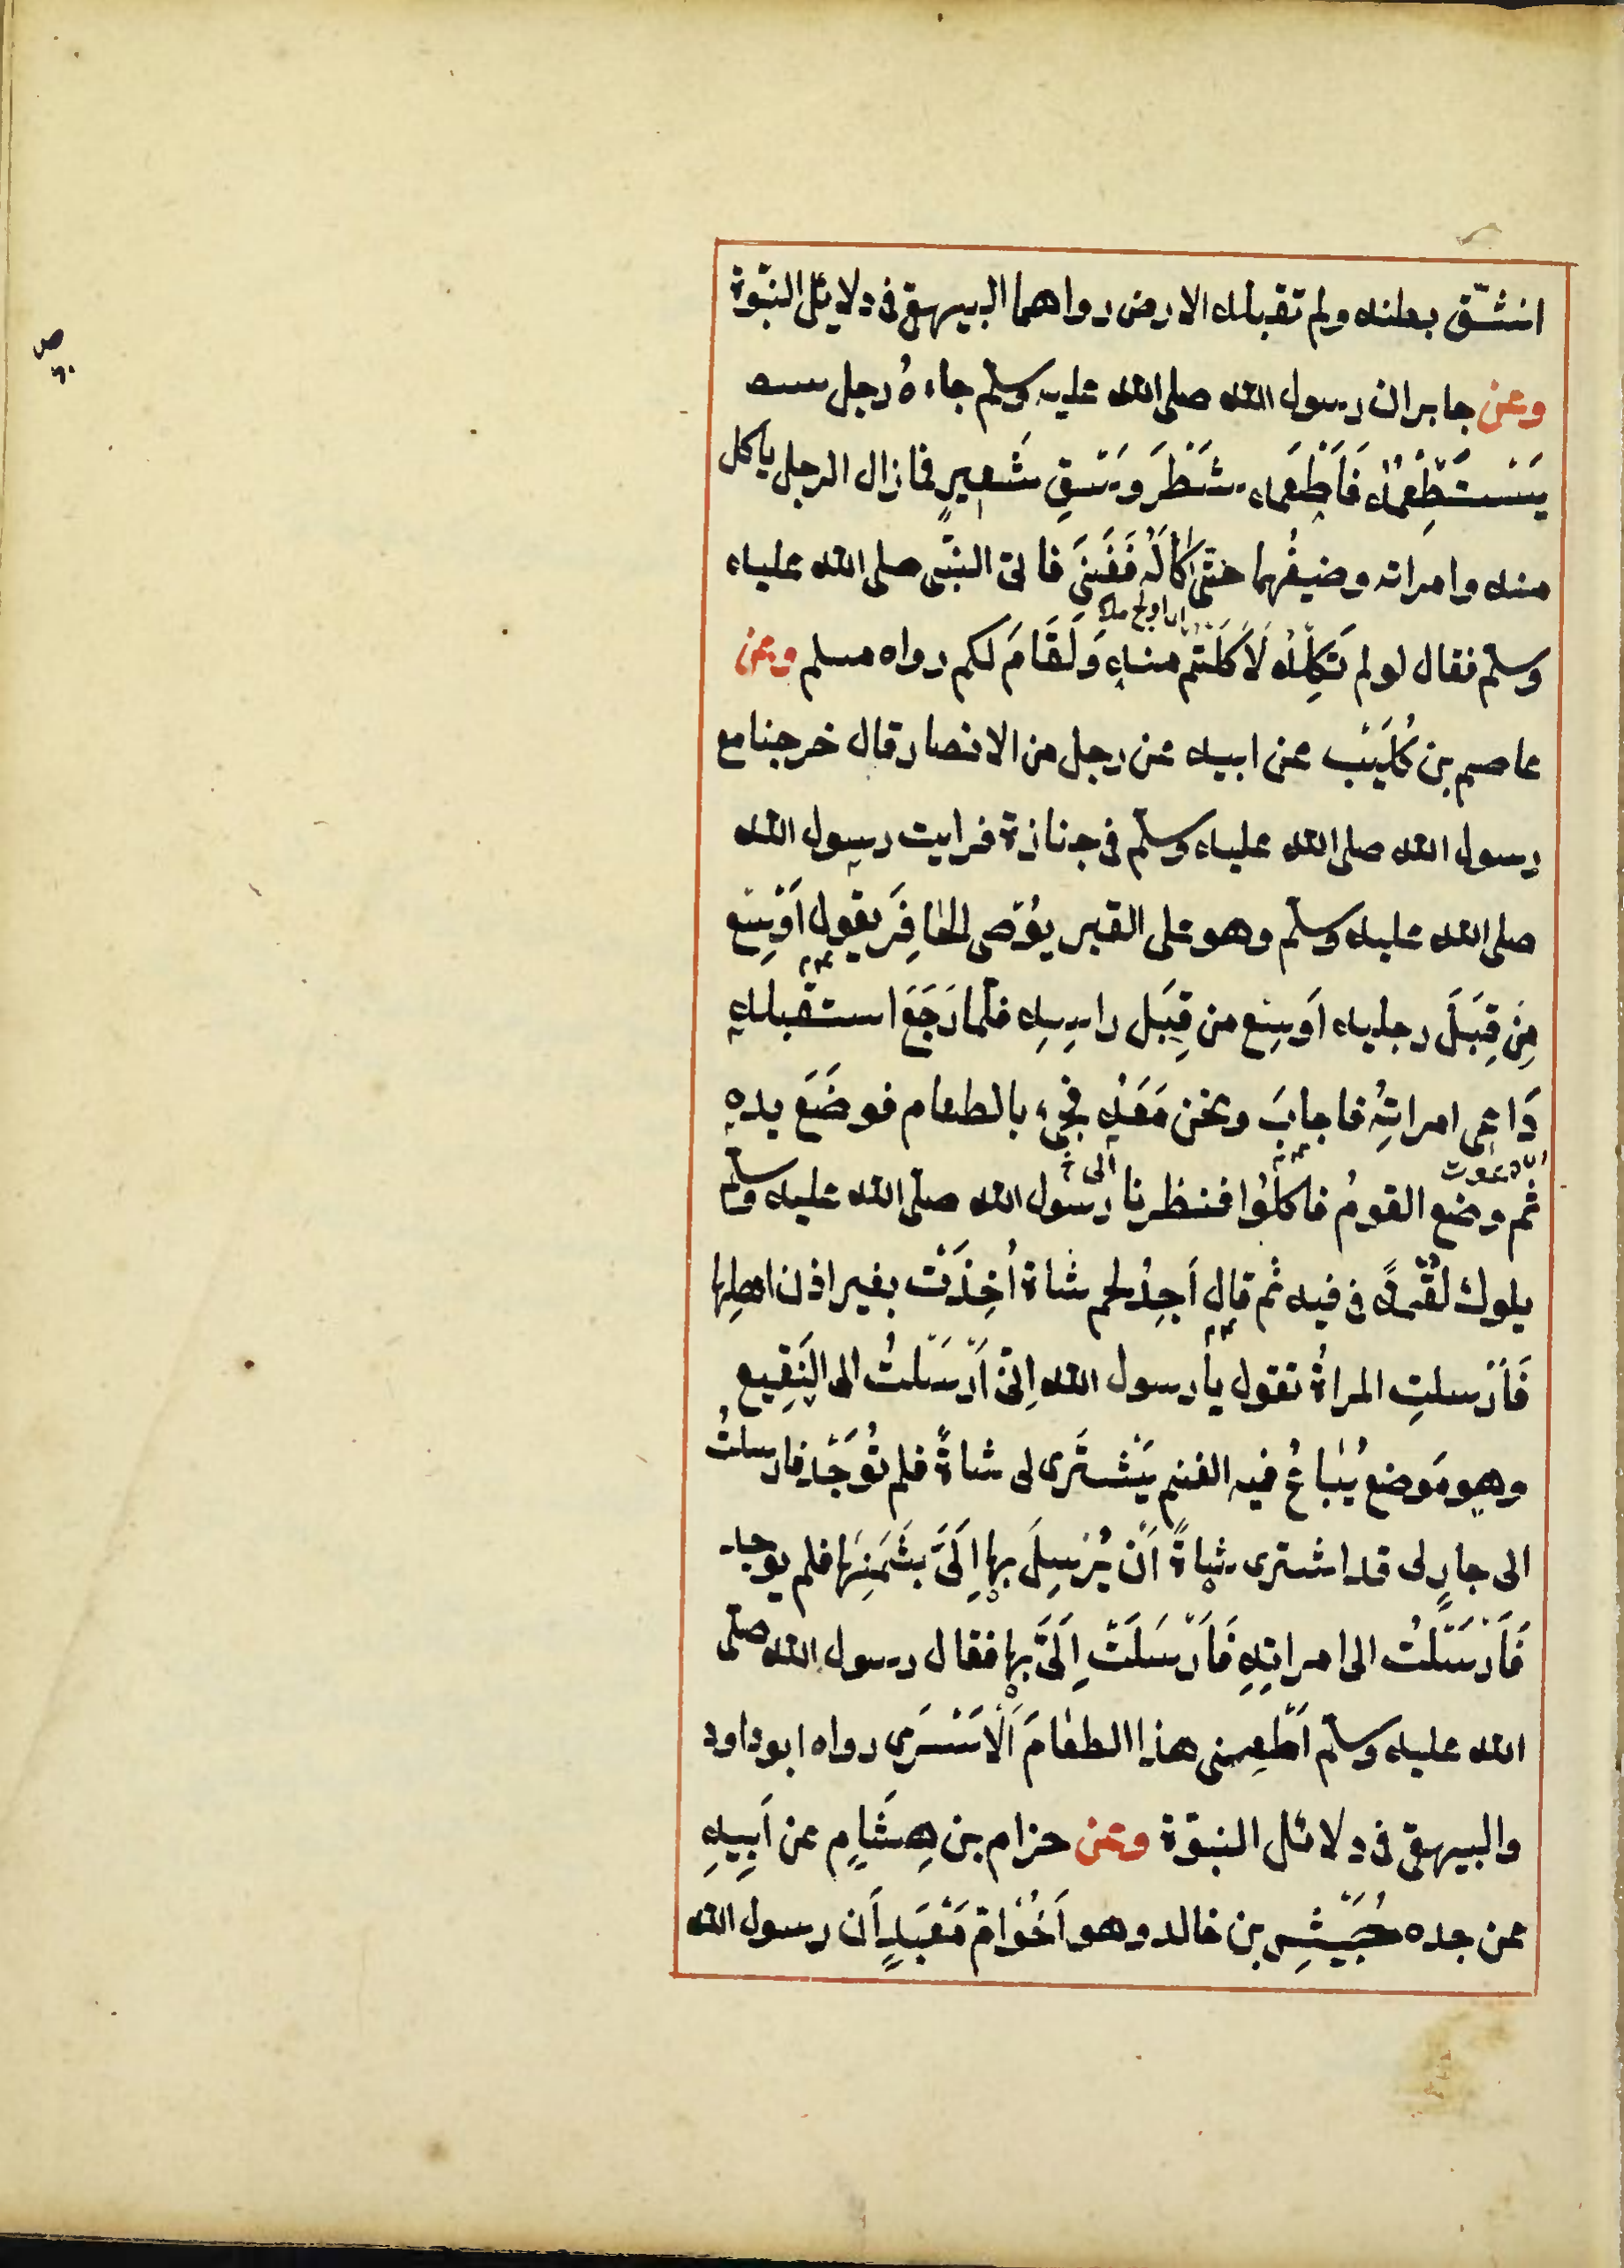 انشقّ بطنه ولم تقبله الارض رواهما البيهقى فى دلائل النبّوة
وعن جابر ان رسول الله صلى الله عليه وسلّم جاءهُ رجل
يَسْتَطْعِمُهُ فَاَطْعَمه شَطْرَ وَسْقِ شَعِيرٍ فما زال الرجل ياكل
منه وامراته وضيفُهما حتّى كَالَهُ فَفَنِىَ فاتى النبّى صلى الله عليه
وسلّم فقال لو لم تَكِلْهُ لَاَكَلْتُم منه وَلَقَامَ لكم رواه مسلم وعن
عاصم بن كُلَيْب عن ابيه عن رجل من الانصار قال خرجنا مع
رسول الله صلى الله عليه وسلّم فى جنازة فرايت رسول الله
صلى الله عليه وسلّم وهو على القبر يُوْصى الحَافِرَ يقول اَوْسِع
مِنْ قِبَلَ رجليه اَوسِع من قِبَل راسِهِ فلمّا رَجَعَ استقبله
دَاعى امراتِهُ فاجابَ ونحن مَعَهُ فجىء بالطعام فوضَعَ يده
ثم وضع القومُ فاكلُوا فنظرنا الى رسول الله صلّى الله عليه وسلّم
يلوك لُقْمةً فى فيه ثم قال اَجِدُ لحم شاة اُخِذَتْ بغير اذن اهلِها
فَاَرْسلتِ المراةُ تقول يا رسول الله اِنّى اَرْسَلْتُ الى النَقِيع
وهو مَوضع يُبَاعُ فيه الغنم يَشْتَرى لى شاةً فلم تُوْجَدْ فارسلتُ
الى جارٍ لى قد اشترى شاةً اَنْ يُرْسِلَ بها اِلَىَّ بثَمَنِهَا فلم يوجد
فَاَرْسَلْتُ الى امراتِهِ فَاَرْسَلَتْ اِلَىَّ بها فقال رسول الله صلّى
الله عليه وسلّم اَطْعِمى هذا الطعَامَ اَلْاَسْرَى رواه ابو داود
والبيهقى فى دلائل النبوّة وعن حزام بن هِشَامٍ عن اَبِيهِ
عن جده حُبَيْشِ بن خالد وهو اَخُوْ امّ مَعْبَدٍ اَن رسول الله